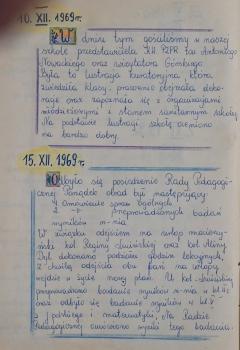 10. XII. 1969r.
W dniu tym gościliśmy w naszej
szkole przedstawiciela KM PZPR tow. Antoniego
Nowackiego oraz wizytatora Gómbugo
Była to lustracja kuratoryjna, która
zwiedziła klasy, pracownie obejrzała deko-
racje oraz zapoznała się z organizacjami
młodzieżowymi i stanem sanitarnym szkoły.
Na podstawie lustracji szkołę oceniono
na bardzo dobry.
15. XII. 1969r.
Odbyło się posiedzenie Rady Pedagogi-
cznej. Porządek obrad był następujący
1. Omówienie spraw ogólnych
2. Przeprowadzonych badań
wyników n-nia
W związku odejściem na urlop macierzyń-
ski kol. Reginy i kol. Aliny
Był dokonany podział godzin lekcyjnych,
z chwilą odejścia obu pań na urlopy
wejdzie w życie nowy plan. Kol.
przeprowadziła badanie wyników n-nia w kl. II
oraz odbyło się badanie wyników w kl. V
z j. polskiego i matematyki. Na Radzie
Pedagogicznej omówiono wyniki tego badania.